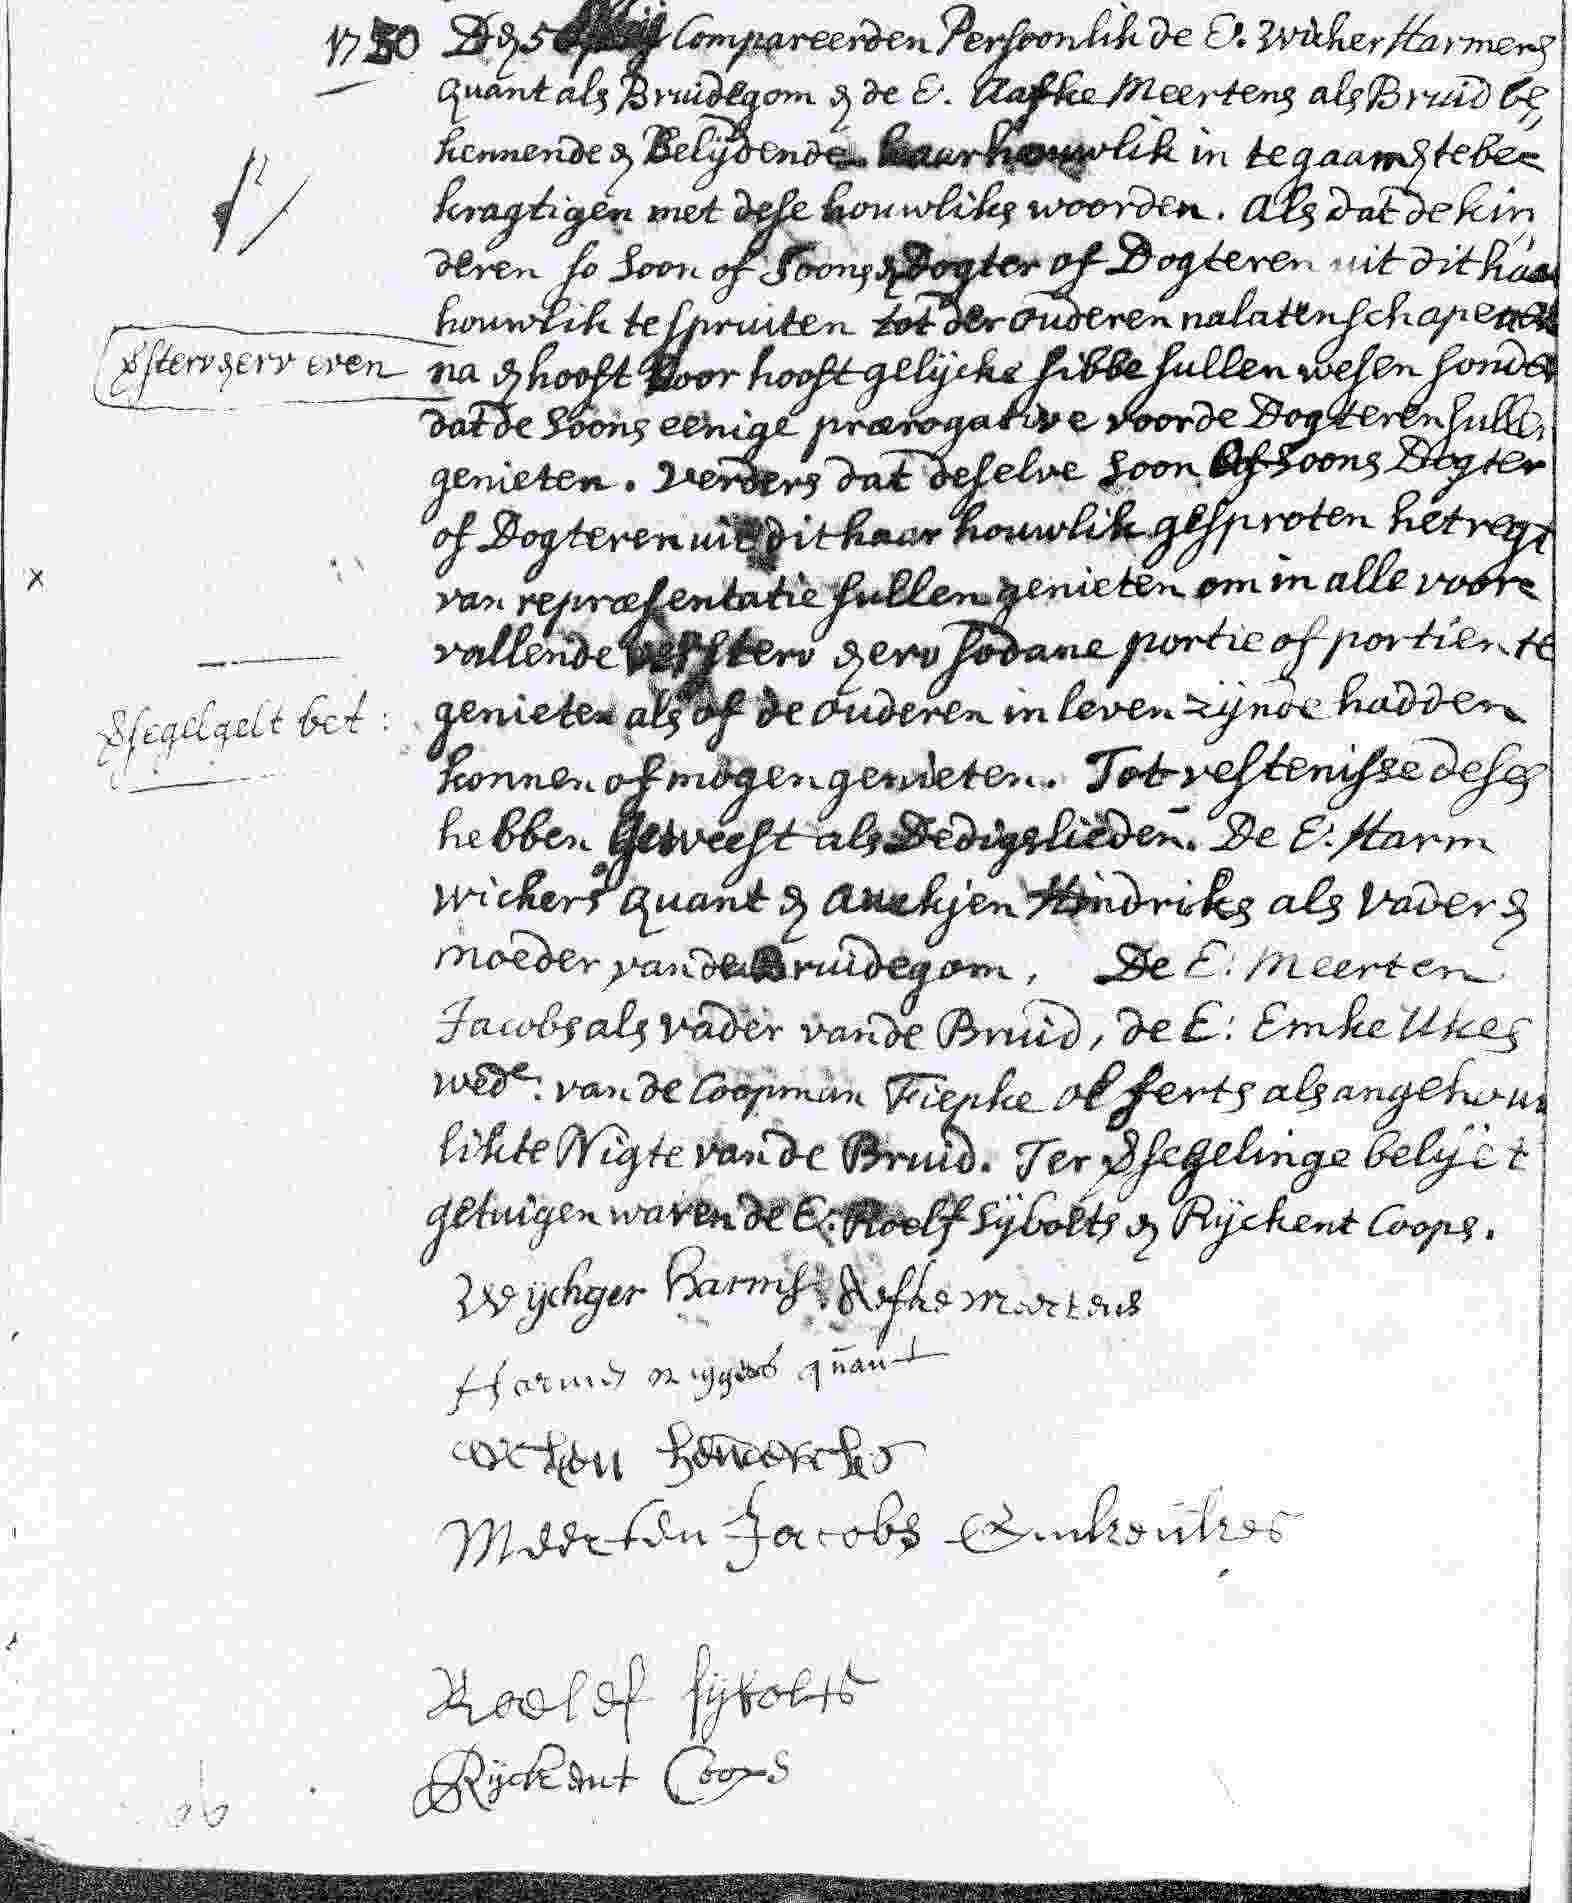 1730 D& 5 Compareerden Persoonlik de E. Wicher Harmens
Quant als Bruidegom & de E. Aafke Meertens als Bruid be,,
kennende & Belijdende haar houwlik in te gaan & te be=
kragtigen met dese houwliks woorden. Als dat de kin,,
deren so Soon of Soons & Dogter of Dogteren uit dit haar
houwlik te spruiten tot der ouderen nalatenschap even
&sterv & erv even
na & hooft voor hooft gelijcke sibbe sullen wesen sonder
dat de Soons eenige prærogative voor de Dogteren sullen
genieten. Verders dat deselve Soon of Soons Dogter
of Dogteren uit dit haar houwlik gesproten het regt
x
van repræsentatie sullen genieten om in alle voor=
vallende versterv & erv sodane portie of portien te
&segelgelt bet:
genieten als of de ouderen in leven zijnde hadden
konnen of mogen genieten. Tot vestenisse deses
hebben geweest als Dedigslieden. De E. Harm
Wickers Quant & Auckjen Hindriks als Vader &
moeder van de Bruidegom, De E: Meerten
Jacobs als vader van de Bruid, de E: Emke Ukes
wede: van de Coopman Fiepke Olferts als angehouw
likte Nigte van de Bruid. Ter &segelinge belijet
getuigen waren de E. Roelf Sijbolts & Rijckent Coops.
Wijchger Harms Aefke Meertens
Harms Wiggers quant
Hendericks
Meerten Jacobs Emke Ukes
Roelef Sijbolts
Rijckent Coops